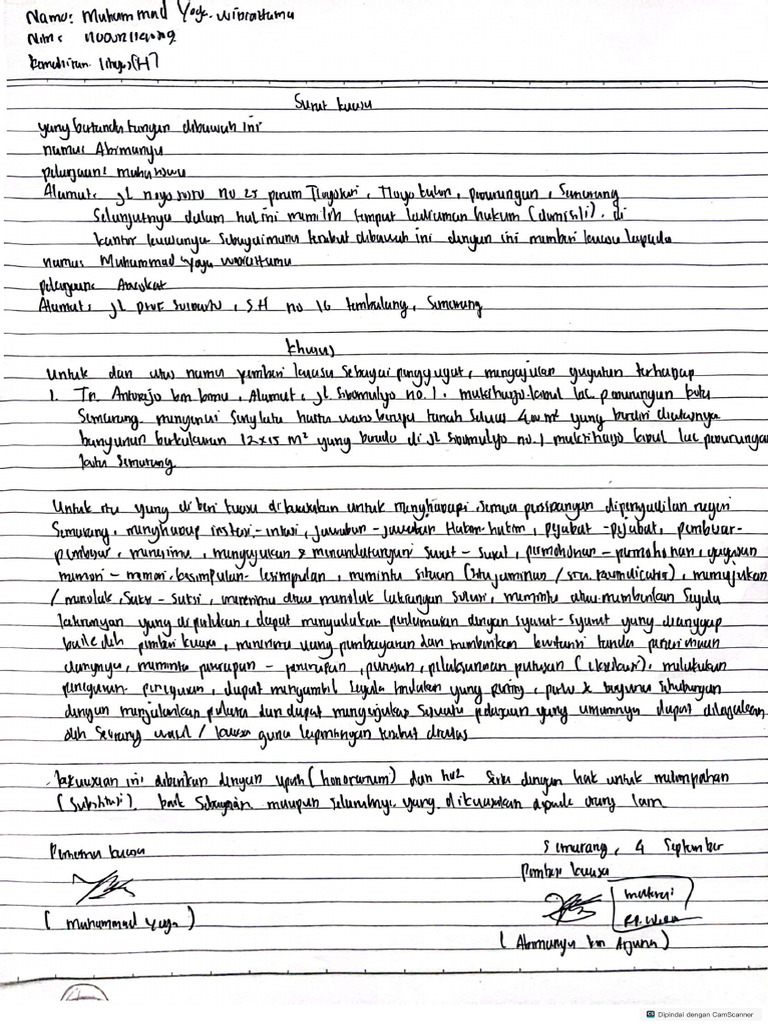 Nama: Muhammad Yoga Wibratama
Nim:
Surat kuasa
yang bertanda tangan dibawah ini
nama: Abimanyu
pekerjaan: mahasiswa
Alamat: jl no 25 perum Tlogosari, Tlogo kulon, pedurungan, Semarang
Selanjutnya dalam hal ini memilih tempat kediaman hukum (domisili). di
kantor kuasanya sebagaimana tersebut dibawah ini dengan ini memberi kuasa kepada
nama: Muhammad Yoga
pekerjaan: Advokat
Alamat: jl prof, S.H no 16 tembalang, Semarang
Khusus
Untuk dan atas nama pemberi kuasa sebagai penggugat, mengajukan gugatan terhadap
1. Tn. bin, Alamat: jl. no. 1, muktiharjo kidul kec pedurungan kota
Semarang. mengenai sengketa harta waris berupa tanah seluas 400 m² yang berdiri diatasnya
bangunan berukuran 12x15 m² yang berada di jl no 1 muktiharjo kidul kec pedurungan
kota Semarang
Untuk itu yang di beri kuasa dikuasakan untuk menghadapi semua persidangan di pengadilan negeri
Semarang, menghadap instansi-instansi, jawaban-jawaban Hakim-hakim, pejabat-pejabat, pembesar-
pembesar, menerima, mengajukan & menandatangani surat-surat, permohonan-permohonan, gugatan
memori-memori, kesimpulan-kesimpulan, meminta sitaan (sita jaminan / sita), mengajukan
/ menolak, saksi-saksi, menerima atau menolak keterangan saksi, meminta atau memberikan segala
keterangan yang diperlukan, dapat mengadakan perdamaian dengan syarat-syarat yang dianggap
baik oleh pemberi kuasa, menerima uang pembayaran dan memberikan kwitansi tanda penerimaan
uangnya, meminta penetapan-penetapan, putusan, pelaksanaan putusan (eksekusi). melakukan
peneguran-peneguran, dapat mengambil segala tindakan yang penting, perlu & berguna sehubungan
dengan menjalankan perkara dan dapat mengerjakan sesuatu pekerjaan yang umumnya dapat dikerjakan
oleh seorang wakil / kuasa guna kepentingan tersebut diatas
kekuasaan ini diberikan dengan upah (honorarium) dan hak serta dengan hak untuk melimpahkan
(substitusi), baik sebagian maupun seluruhnya yang dikuasakan kepada orang lain
Penerima kuasa
Semarang, 4 September
Pemberi kuasa
materai
(Muhammad Yoga)
(Abimanyu bin Arjuna)
Dipindai dengan CamScanner